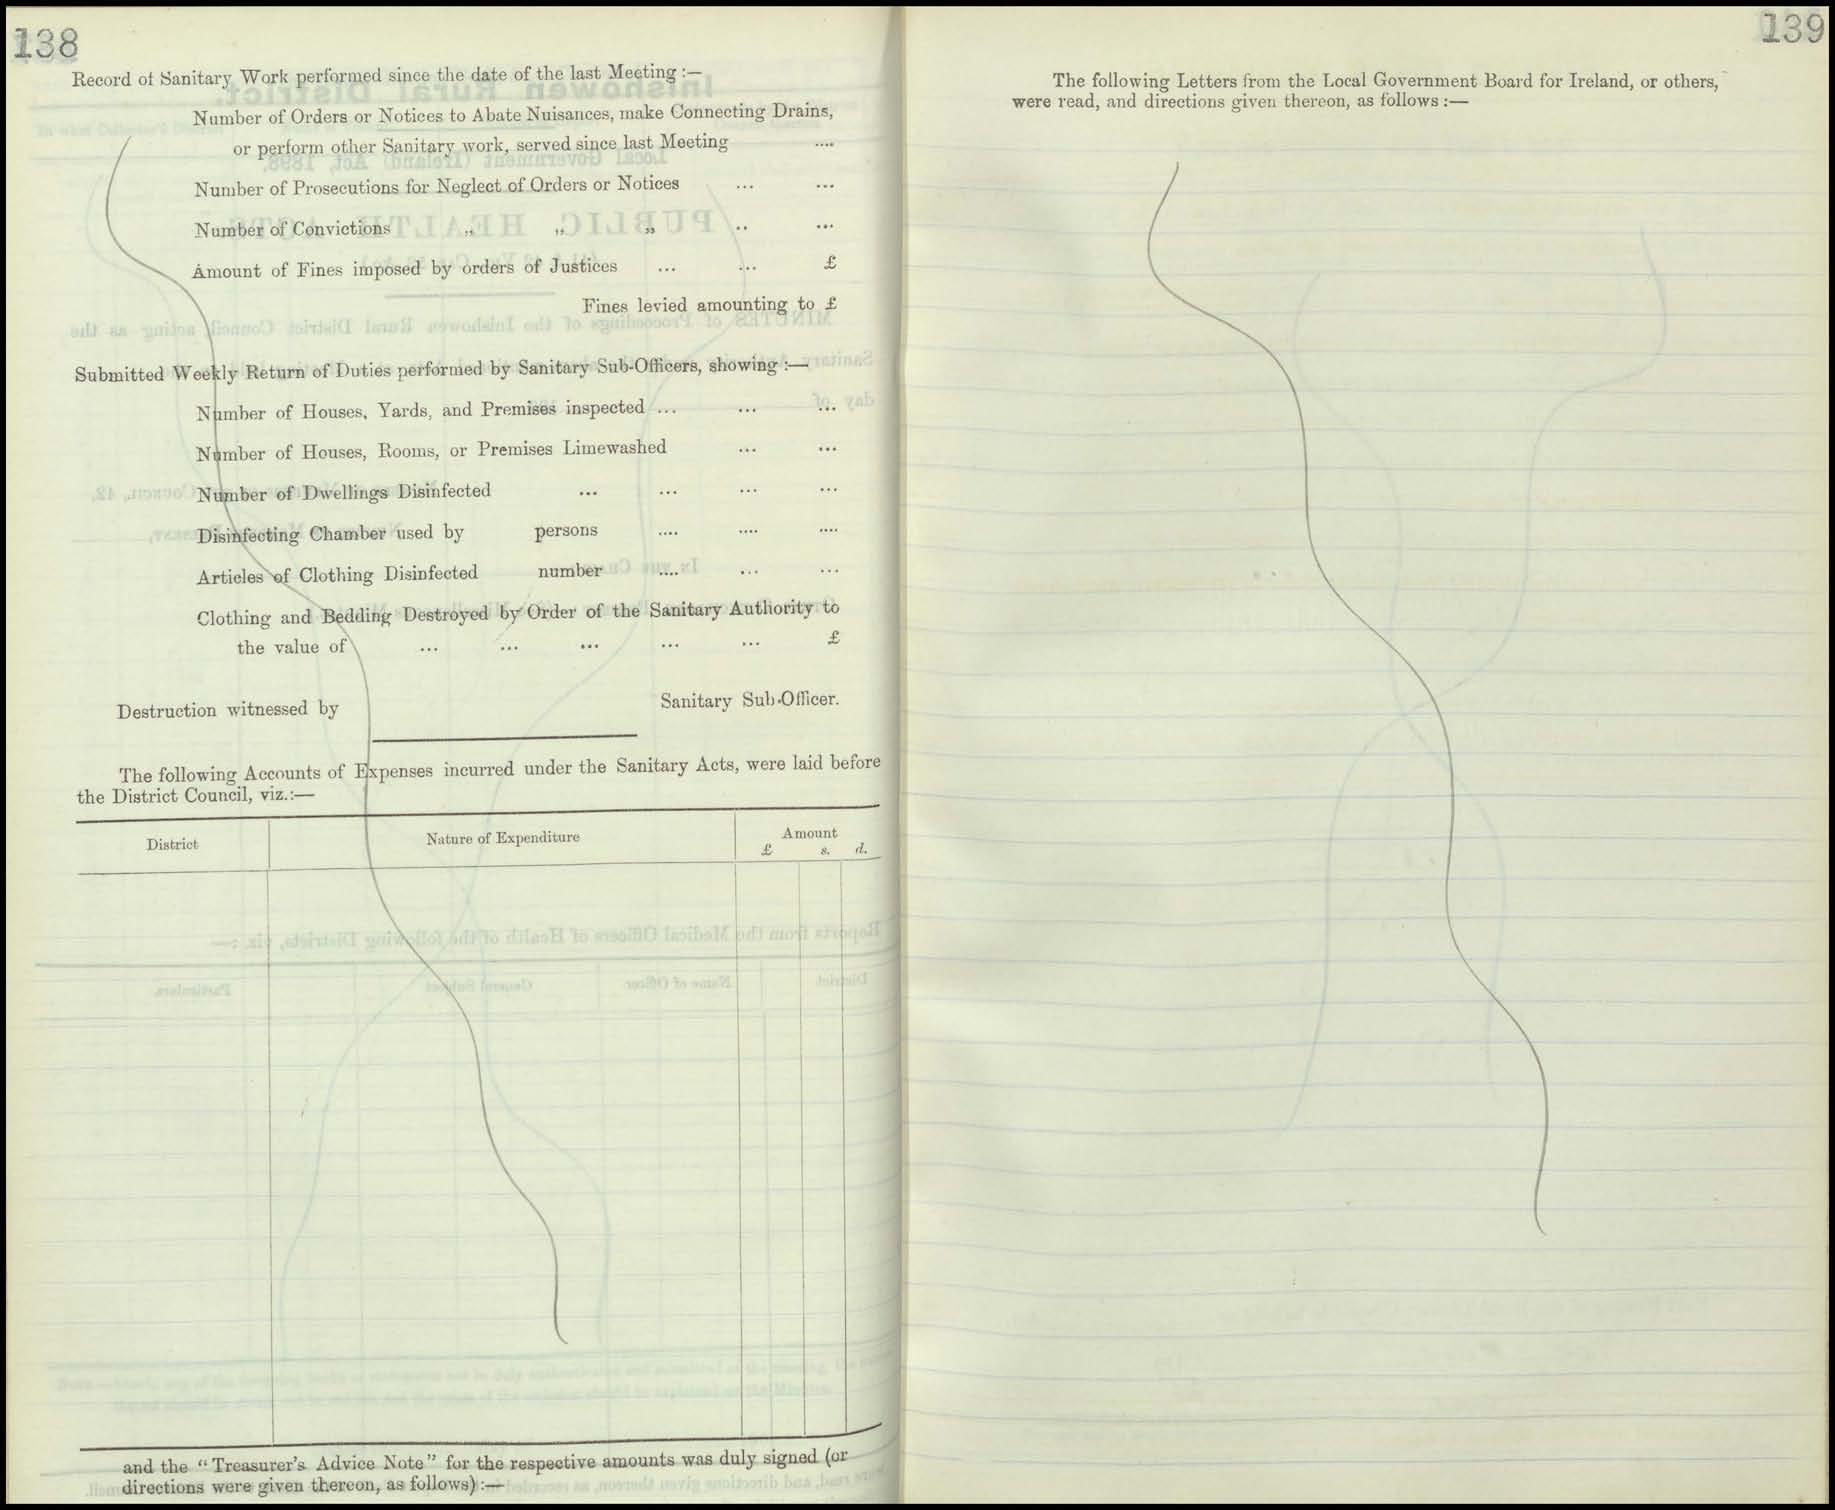 138
Record of Sanitary Work performed since the date of the last Meeting :—
Number of Orders or Notices to Abate Nuisances, make Connecting Drains,
or perform other Sanitary work, served since last Meeting ....
Number of Prosecutions for Neglect of Orders or Notices ... ...
Number of Convictions „ „ „ .. ...
Amount of Fines imposed by orders of Justices ... ... £
Fines levied amounting to £
Submitted Weekly Return of Duties performed by Sanitary Sub-Officers, showing :—
Number of Houses, Yards, and Premises inspected ... ... ...
Number of Houses, Rooms, or Premises Limewashed ... ...
Number of Dwellings Disinfected ... ... ... ...
Disinfecting Chamber used by persons .... .... ....
Articles of Clothing Disinfected number .... ... ...
Clothing and Bedding Destroyed by Order of the Sanitary Authority to
the value of ... ... ... ... ... £
Destruction witnessed by Sanitary Sub-Officer.
The following Accounts of Expenses incurred under the Sanitary Acts, were laid before
the District Council, viz.:—
District Nature of Expenditure Amount
£ s. d.
and the "Treasurer's Advice Note" for the respective amounts was duly signed (or
directions were given thereon, as follows) :—
139
The following Letters from the Local Government Board for Ireland, or others,
were read, and directions given thereon, as follows :—